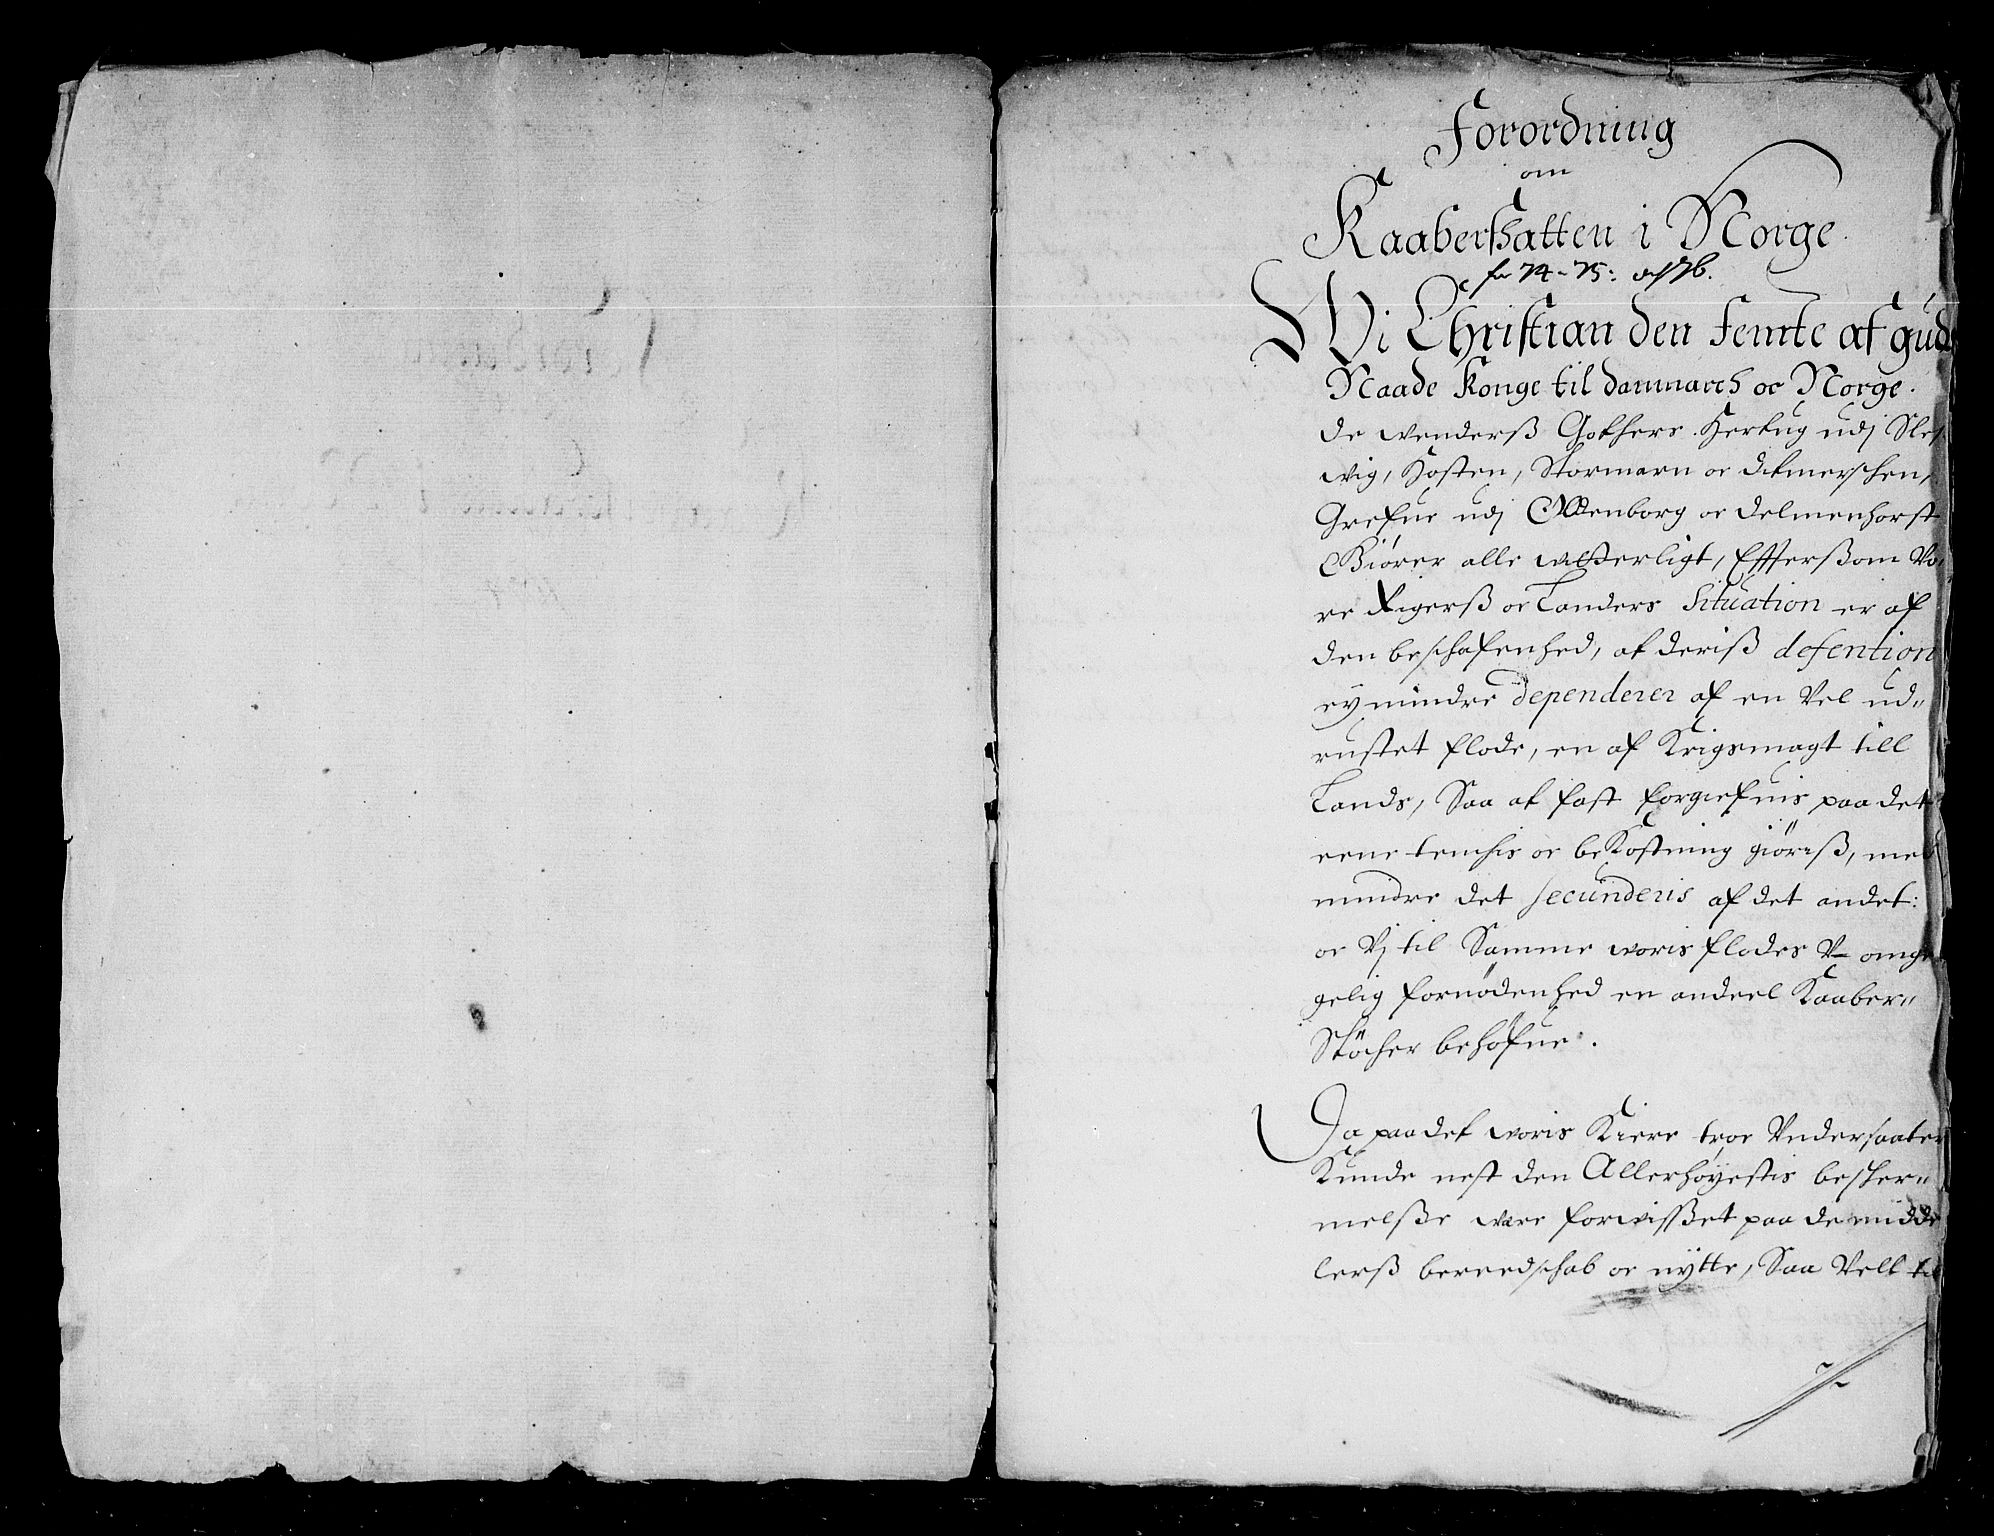 Forordning
om
Kaaberskatten i Norge.
for 74 - 75: og 76.
Wi Christian den Femte af gud
Naade Konge til danmarch oc Norge.
de wenderß Gothers. Hertug udj Sles
wig, Hosten, Stormarn oc ditmerschen,
Grefue udj Oldenborg oc delmenhorst
Giörer alle witterligt, Effterßom Vo
re Rigerß oc Landers Situation er af
den beschafenhed, at deriß defention
ey mindre dependerer af en Vel ud„
rustet flode, en af Krigsmagt till
Lands, Saa at fast forgiefuis paa det
eene tenchis oc bekostning giöriß, med
mindre det secunderis af det andet:
oc Vj til Samme woris flodes V- omgen
gelig fornödenhed en andeel Kaaber„
Stöcher behöfue.
Da paa det woris Kiere troe Vndersaater
Kunde nest den Allerhöyestis besker„
melße were forwisßet paa de midde
lerß bereedschab oc nytte, Saa Vell til